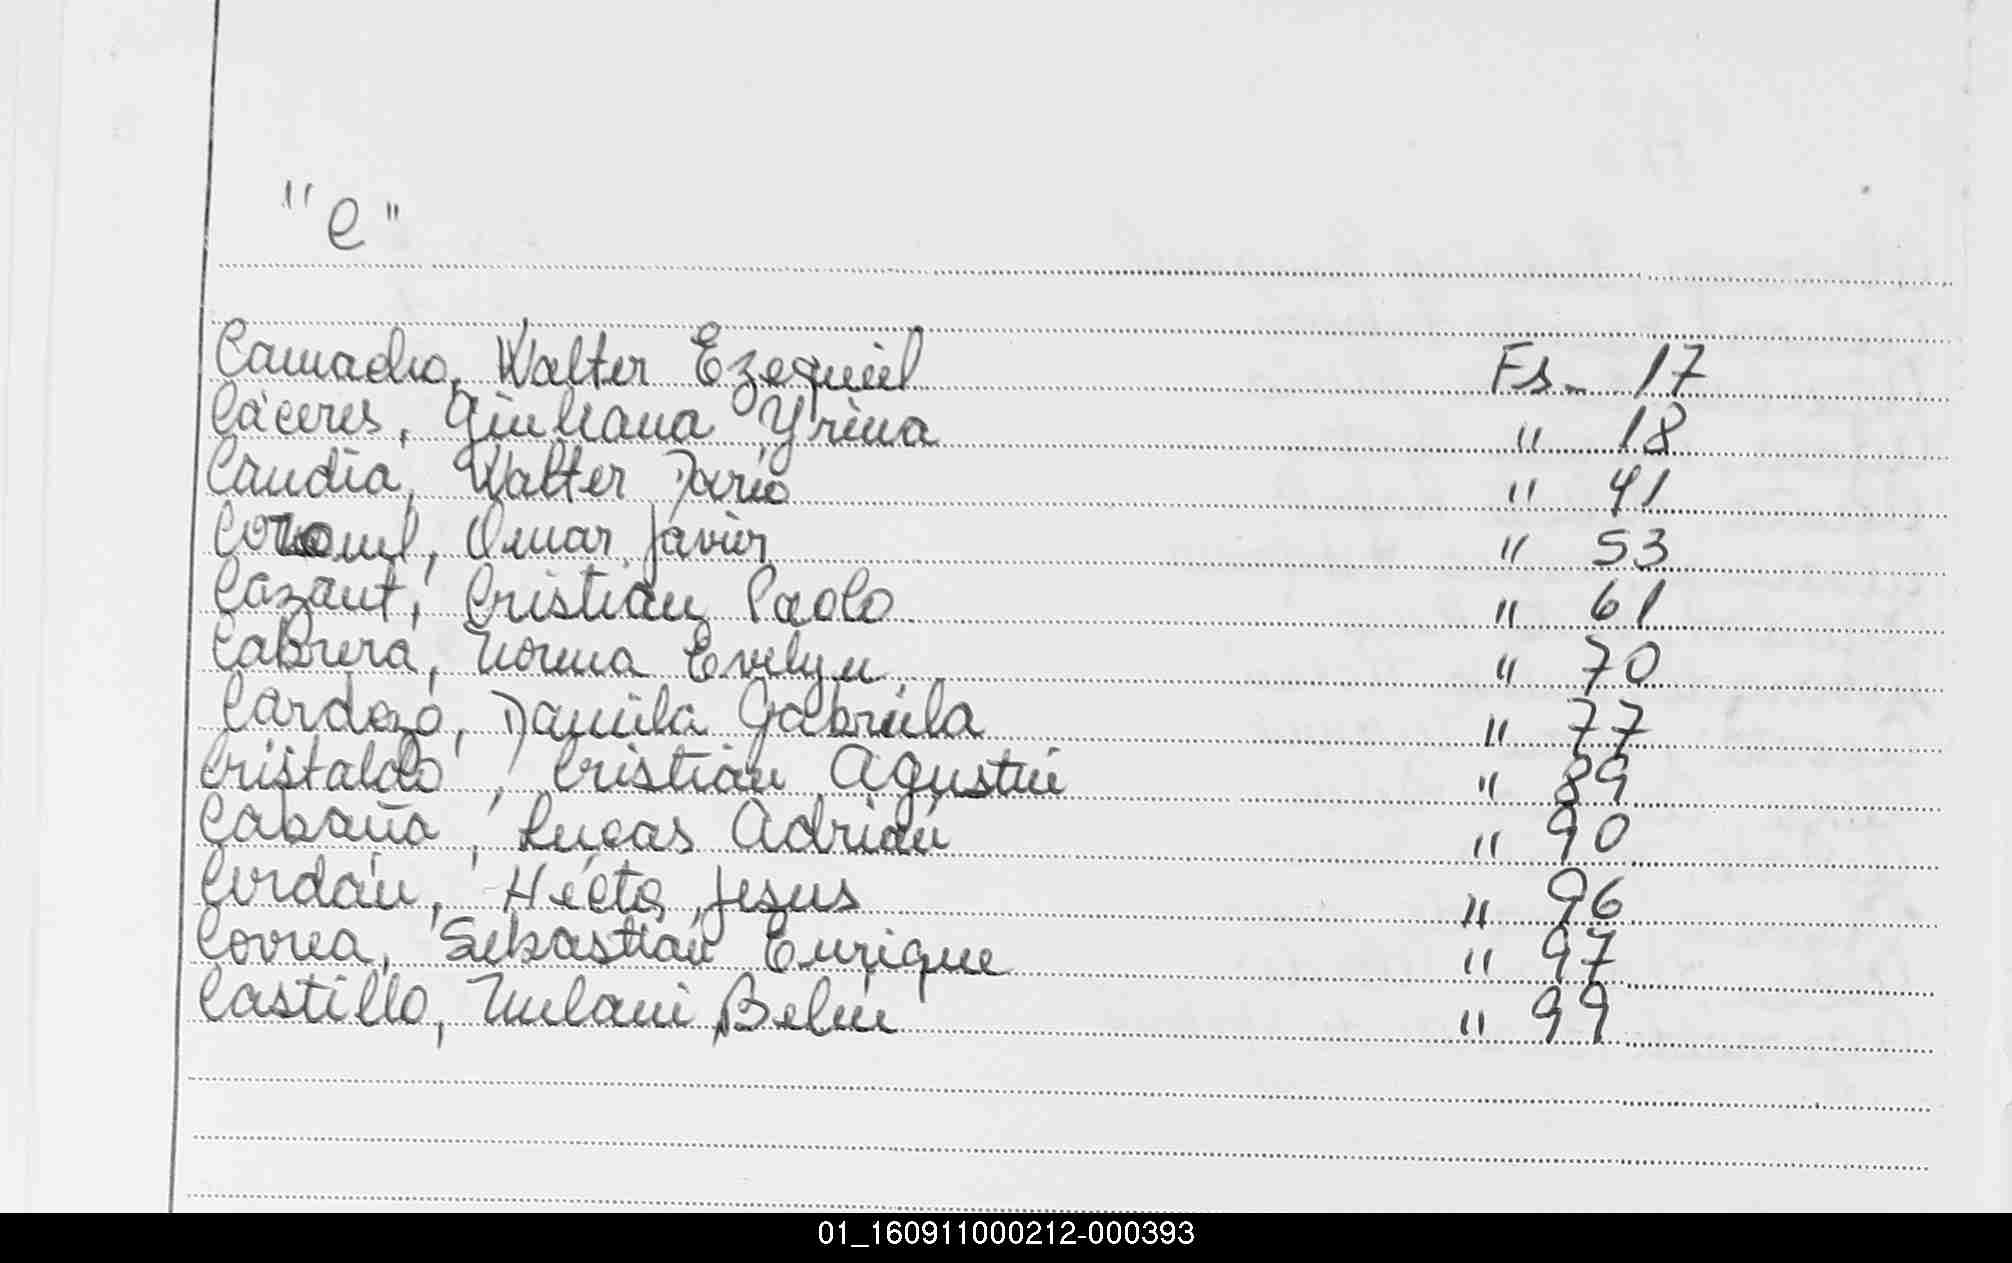 "C"
Camacho, Walter Ezequiel Fs. 17
Cáceres, Giuliana Yrina " 18
Candia, Walter Dario " 41
Coronel, Omar Javier " 53
Cazaut, Cristian Paolo " 61
Cabrera, Norma Evelyn " 70
Cardozo, Daniela Gabriela " 77
Cristaldo, Cristian Agustin " 89
Cabaña, Lucas Adrián " 90
Cerdán, Jesus " 96
Correa, Sebastián Enrique " 97
Castillo, Belén " 99
01_160911000212-000393